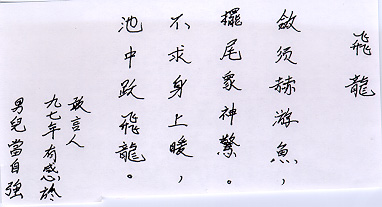 飛龍
斂须赫游魚，
擺尾衆神驚。
不求身上暖，
池中敢飛龍。
敢言人
九七年有感於
男兒當自强